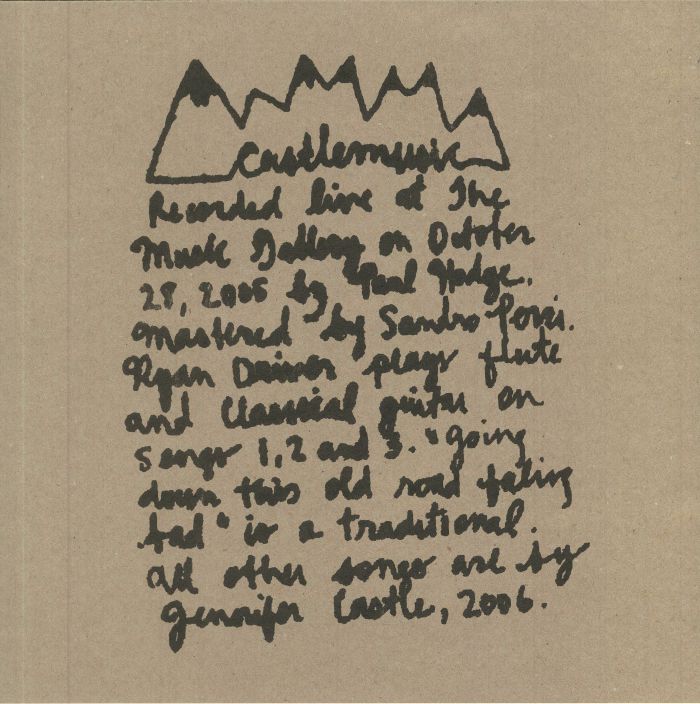 Castlemusic
Recorded live at The
Music Gallery on October
28, 2005 by Paul Hodge.
mastered by Sandro Perri.
Ryan Driver plays flute
and Classical guitar on
songs 1,2 and 3. "going
down this old road feeling
bad" is a traditional.
All other songs are by
Jennifer Castle, 2006.